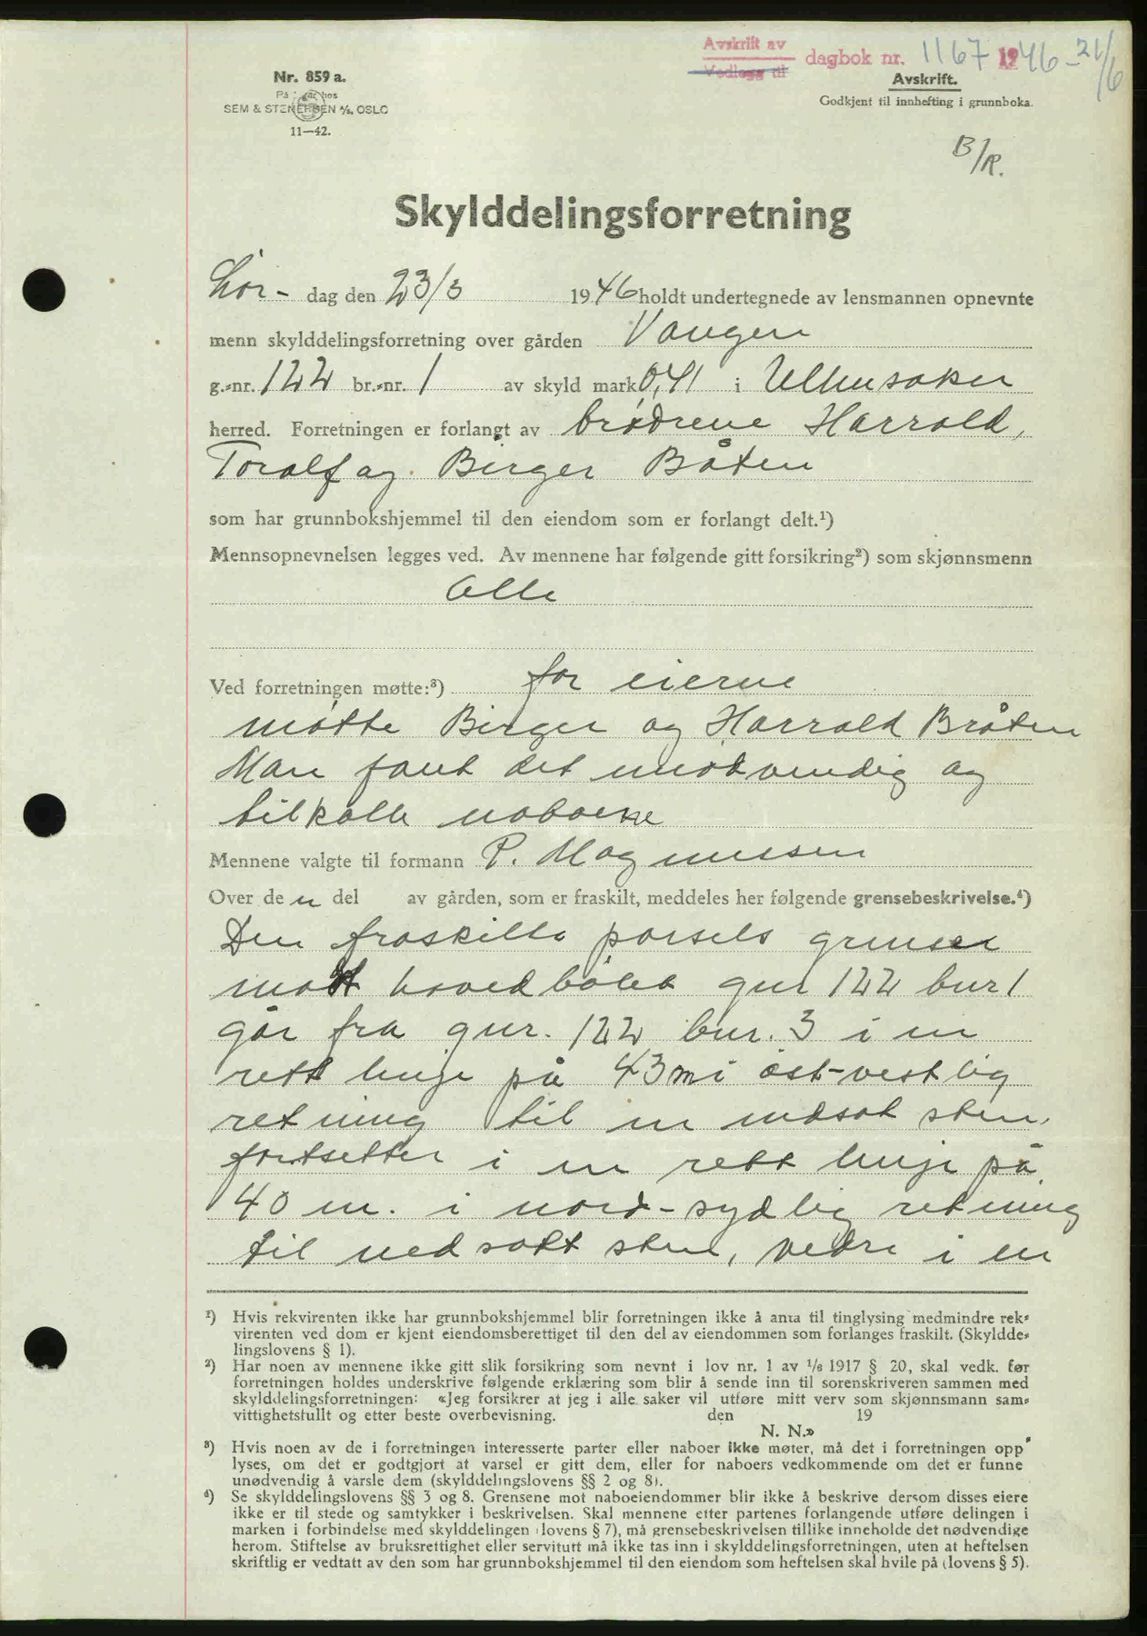 Avskrift av
Vedlegg til
dagbok nr. 1167 1946 - 21/6
Nr. 859 a.
SEM & STENERSEN A/S, OSLO
11—42.
Avskrift.
Godkjent til innhefting i grunnboka.
B/R.
Skylddelingsforretning
Lør- dag den 23/3 1946 holdt undertegnede av lensmannen opnevnte
menn skylddelingsforretning over gården Vangen
g.-nr. 122 br.-nr. 1 av skyld mark 0,41 i Ullensaker
herred. Forretningen er forlangt av brødrene Harrald,
Toralf og Birger Båten
som har grunnbokshjemmel til den eiendom som er forlangt delt.¹)
Mennsopnevnelsen legges ved. Av mennene har følgende gitt forsikring²) som skjønnsmenn
Alle
Ved forretningen møtte:³) for eierne
møtte Birger og Harrald Bråten
Man fant det unødvendig og
tilkalle naboene
Mennene valgte til formann P. Magnussen
Over de n del av gården, som er fraskilt, meddeles her følgende grensebeskrivelse.⁴)
Den fraskilte parsels grenser
mot hovedbølet gnr 122 bnr 1
går fra gnr. 122 bnr. 3 i en
rett linje på 43 m i øst-vestlig
retning til en nedsat sten,
fortsetter i en rett linje på
40 m. i nord-sydlig retning
til nedsatt sten, vedre i en
¹) Hvis rekvirenten ikke har grunnbokshjemmel blir forretningen ikke å anta til tinglysing medmindre rek-
virenten ved dom er kjent eiendomsberettiget til den del av eiendommen som forlanges fraskilt. (Skyldde-
lingslovens § 1).
²) Har noen av mennene ikke gitt slik forsikring som nevnt i lov nr. 1 av 1/6 1917 § 20, skal vedk. før
forretningen holdes underskrive følgende erklæring som blir å sende inn til sorenskriveren sammen med
skylddelingsforretningen: «Jeg forsikrer at jeg i alle saker vil utføre mitt verv som skjønnsmann sam-
vittighetsfullt og etter beste overbevisning. den 19
N. N.»
³) Hvis noen av de i forretningen interesserte parter eller naboer ikke møter, må det i forretningen opp
lyses, om det er godtgjort at varsel er gitt dem, eller for naboers vedkommende om det er funne
unødvendig å varsle dem (skylddelingslovens §§ 2 og 8).
⁴) Se skylddelingslovens §§ 3 og 8. Grensene mot naboeiendommer blir ikke å beskrive dersom disses eiere
ikke er til stede og samtykker i beskrivelsen. Skal mennene etter partenes forlangende utføre delingen i
marken i forbindelse med skylddelingen (lovens § 7), må grensebeskrivelsen tillike inneholde det nødvendige
herom. Stiftelse av bruksrettighet eller servitutt må ikke tas inn i skylddelingsforretningen, uten at heftelsen
skriftlig er vedtatt av den som har grunnbokshjemmel til den eiendom som heftelsen skal hvile på (lovens § 5).